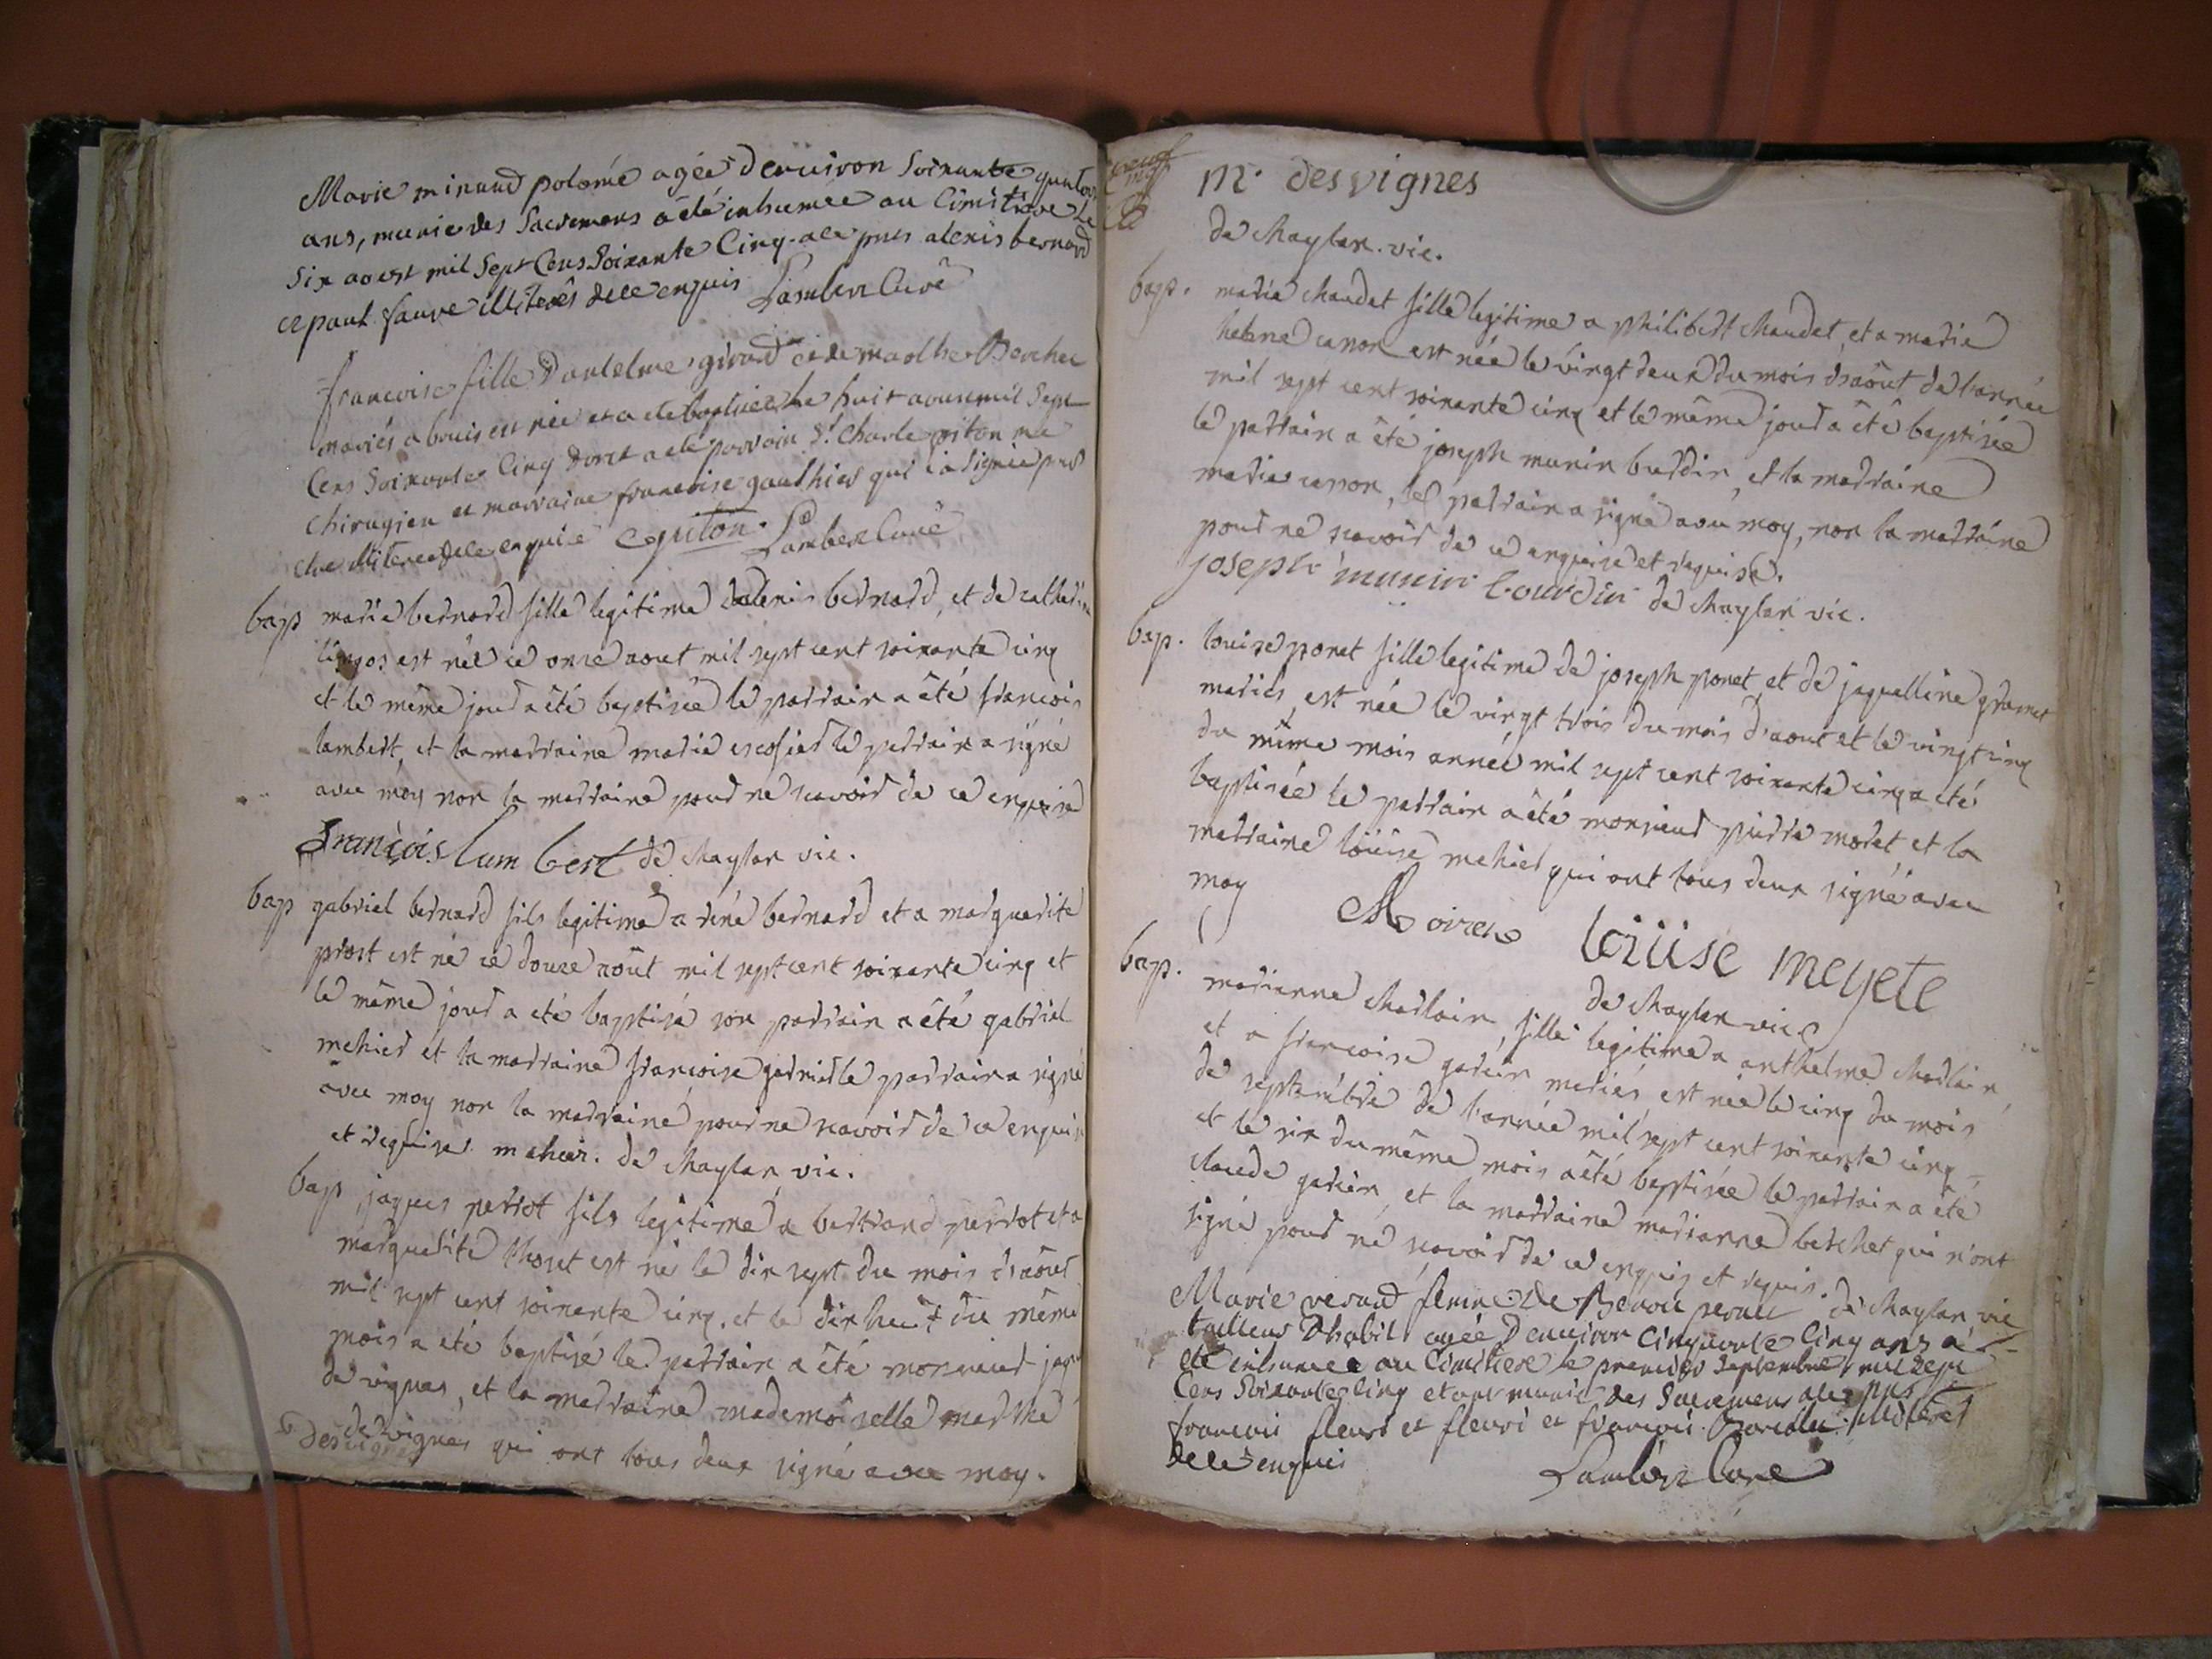 Marie minaud polomé agée denuiron Soixante quator
ans, munie des Sacremens a été inhumée au Cimitiere Le
Six aoust mil Sept Cens Soixante Cinq. a ce pnts alexis bernard
et paul faure illiterés de ce enquis Lambert Curé
francoise fille Dantelme girard et de marthe Berchet
mariés a bouis est née et a ete baptisée le huit aoust mil Sept
Cens Soixante Cinq Dont a ete parrain Sr. Charle piton me
chirugien et marraine francoise gaulhier qui là Signée pnt
elle illiterée de ce enquise C piton. Lambert Curé
bap maria bernard fille legitime dalexis bernard, et de catherine
est née ce onze aout mil sept cent soixante cinq
et le même jour a été baptisée le parrain a été francois
lambert, et la marraine marie escofier le parrain a signé
avec moy non la marraine pour ne scavoir de ce enquise
François lambert de Chaylan vic.
bap gabriel bernard fils legitime a réné bernard et a marguerite
prost est né ce douze août mil sept cent soixante cinq et
le même jour a été baptisé son parrain a été gabriel
mehier et la marraine francoise le parrain a signé
avec moy non la marraine pour ne scavoir de ce enquise
et requise. mehier. de Chaylan, vic.
bap jaques perrot fils legitime a bertrand perrot et a
marguerite thoret est né le dix sept du mois d'août
mil sept cent soixante cinq, et le dix huit du même
mois a été baptisé le parrain a été monsieur jaque
de vignes, et la marraine mademoiselle marthe
desvignes qui ont tous deux signé avec moy.
Desvignes
m. desvignes
de Chaylan. vic.
bap. maria chaudet fille legitime a philibert chaudet, et a maria
helene canon est née le vingt deux du mois d'août de l'année
mil sept cent soixante cinq et le même jour a été baptisée
le parrain a été joseph munin burdin, et la marraine
maria canon, le parrain a signé avec moy, non la marraine
pour ne scavoir de ce enquise et requise.
joseph munin bourdin de Chaylan vic.
bap. louise ponet fille legitime de joseph ponet, et de jaquelline gramet
mariés, est née le vingt trois du mois d'aout et le vingt cinq
du même mois année mil sept cent soixante cinq a été
baptisée le parrain a été monsieur pierre moret, et la
marraine loüise mehier qui ont tous deux signé avec
moy Moiret loüise meyete
de Chaylan vic
bap. marianne charlain, fille legitime a anthelme charlain,
et a francoise garein mariés est née le cinq du mois
de septembre de l'année mil sept cent soixante cinq,
et le six du même mois a été baptisée le parrain a été
claude garein, et la marraine marianne berchet qui n'ont
signé pour ne scavoir de ce enquis et requis. de Chaylan vic
Marie veraud femme de Benoit
tailleur Dhabit agée Denuiron Cinquante Cinq ans a
été inhumée au Cimitiere le premier Septembre mil Sept
Cens Soixante cinq etant munie des Sacremens a ce pnts
francois fleuri et fleuri et francois illiterés
de ce enquis Lambert Curé